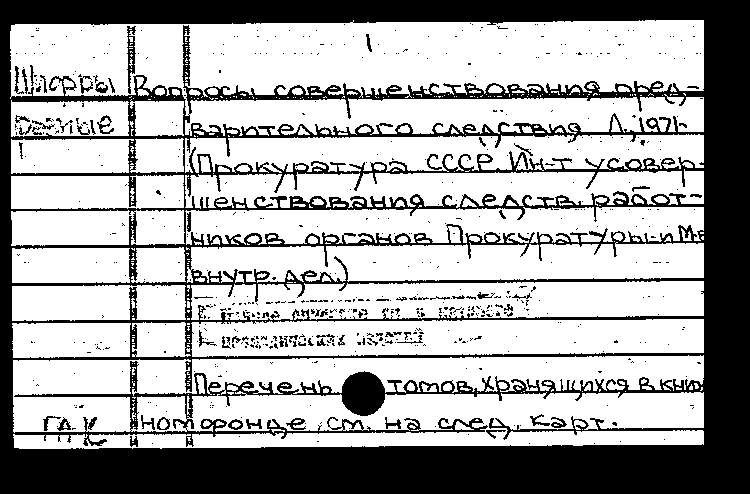 1
Шифры Вопросы совершенствования пред-
разные варительного следствия Л., 1971-
(Прокуратура СССР. Ин-т усовер-
шенствования следств. работ-
ников органов Прокуратуры и М-в
внутр. дел.)
периодических изданий
Перечень томов, хранящихся в книж
ном фонде, см. на след. карт.
ГАК